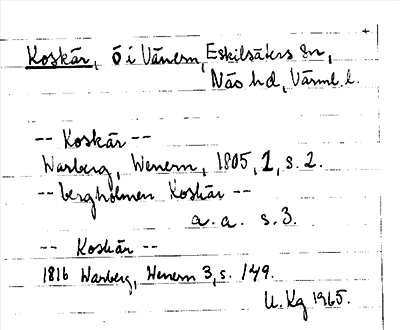 Koskär, ö i Vänern, Eskilsäters sn,
Näs hd, Värml. l.
-- Koskär --
Warberg, Wenern, 1805, 1, s. 2.
-- bergholmen Koskär --
a. a. s. 3.
-- Koskär --
1816 Warberg, Wenern 3, s. 149.
U. Kg 1965.